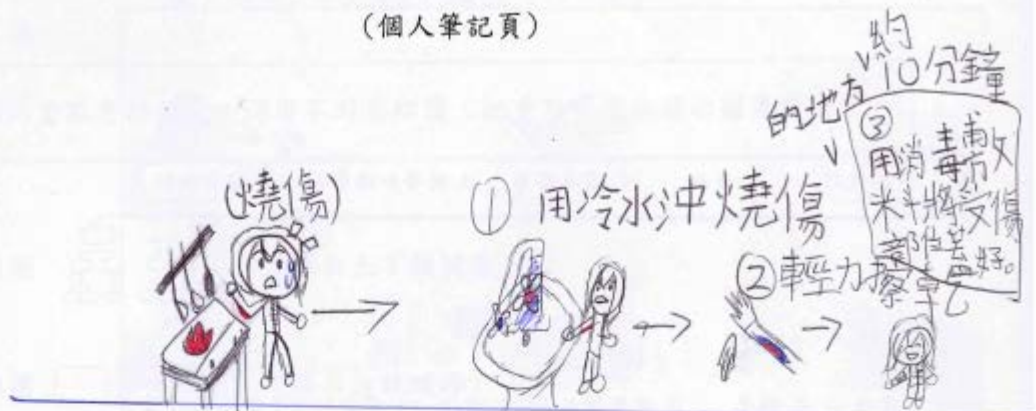 (個人筆記頁)
(燒傷)
① 用冷水沖燒傷
的地方
約
10分鐘
② 輕力擦乾
③
用消毒敷
料將受傷
部位蓋好。